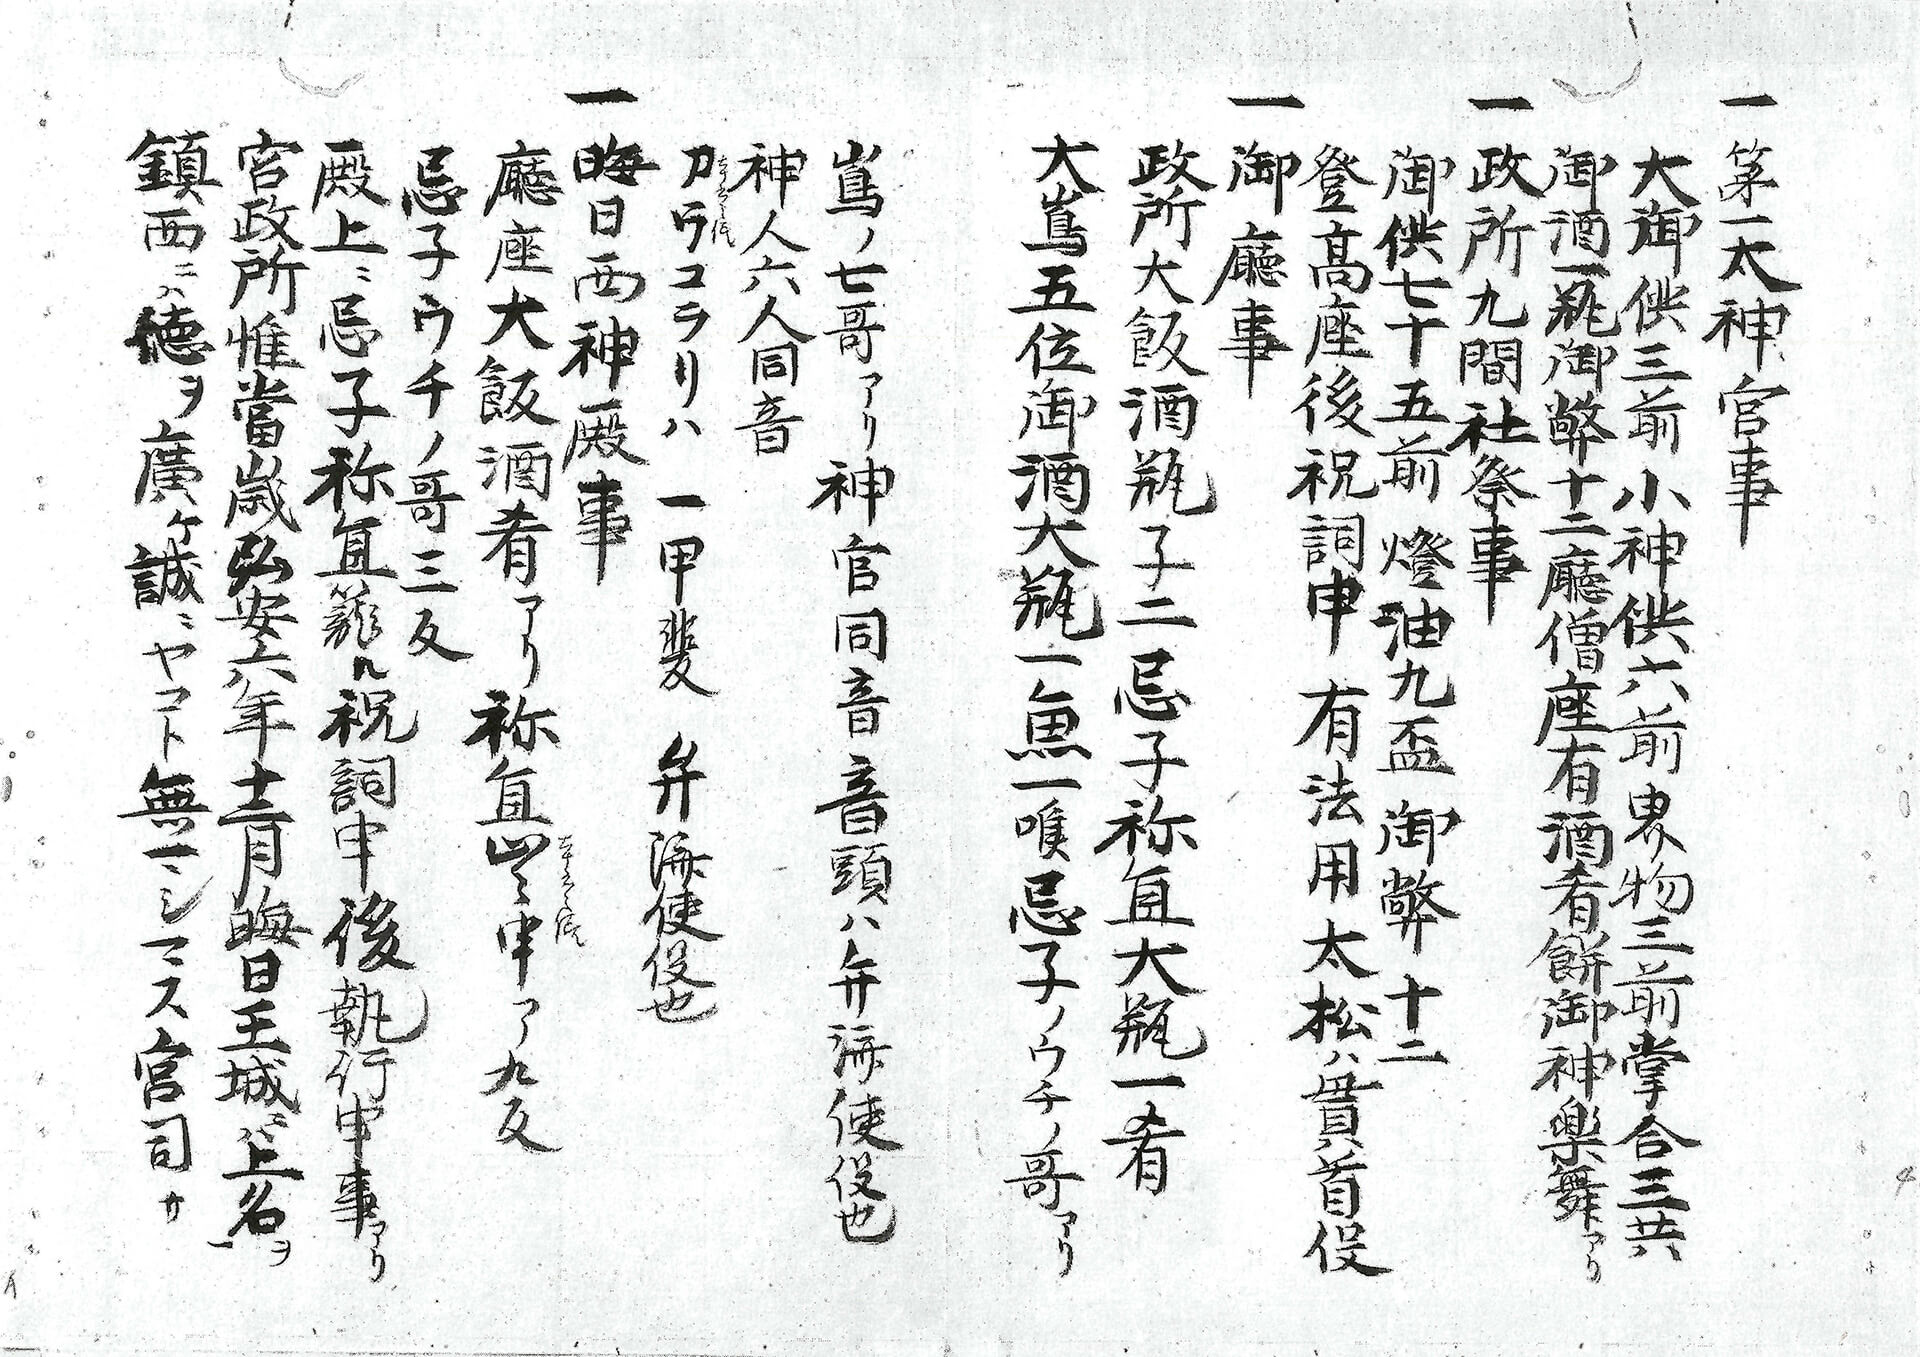 一第一太神宮事
大御供三前小神供六前界物三前掌合三共
御酒一瓶御幣十二廳僧座有酒肴餅御神樂舞アリ
一政所九間社祭事
御供七十五前燈油九盃御幣十二
登高座後祝詞申有法用太松ハ貫首役
一御廳事
政所大飯酒瓶子二忌子祢宜大瓶一肴
大嶌五位御酒大瓶一魚一唯忌子ノウチノ哥アリ
嶌ノ七哥アリ神官同音音頭ハ弁海使役也
神人六人同音
刀ワコラリハ一甲斐弁海使役也
一晦日西神殿事
廳座大飯酒肴アリ祢宜申ア九反
忌子ウチノ哥三反
殿上ニ忌子祢宜籠ル祝詞申後執行申事アリ
宮政所惟當歳弘安六年十二月晦日王城ニハ上名ヲ
鎮西ニハ徳ヲ廣ケ誠ニヤコト無マシマス宮司サ